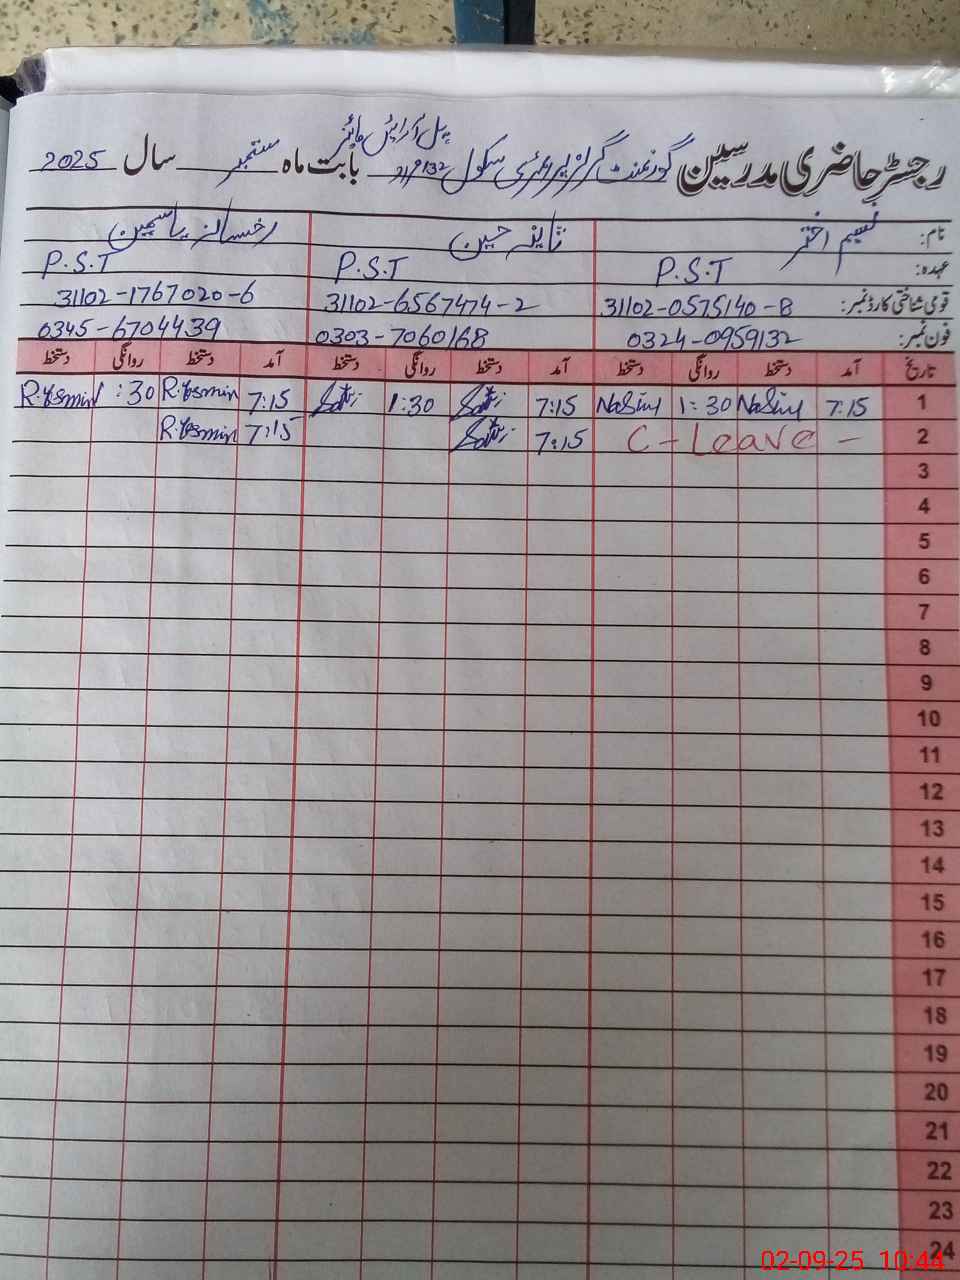 رجسٹر حاضری مدرسین گورنمنٹ گرلز پرائمری سکول بابت ماہ ستمبر سال 2025
نام: نسیم اختر حسین رخسانہ یاسمین
عہدہ: P.S.T P.S.T P.S.T
قومی شناختی کارڈ نمبر: 31102-0575140-8 31102-6567474-2 31102-1767020-6
فون نمبر: 0324-0959132 0303-7060168 0345-6704439
تاریخ آمد دستخط روانگی دستخط آمد دستخط روانگی دستخط آمد دستخط روانگی دستخط
1 7:15 Nasim 1:30 Nasim 7:15 1:30 7:15 R.Yasmin 1:30 R.Yasmin
2 C-Leave - 7:15 7:15 R.Yasmin
3
4
5
6
7
8
9
10
11
12
13
14
15
16
17
18
19
20
21
22
23
24
02-09-25 10:44